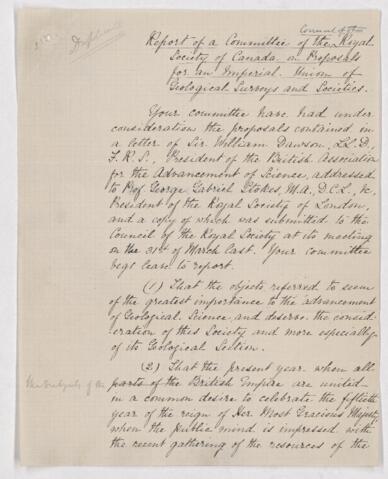 Duplicate
Council of the
Report of a Committee of the Royal
Society of Canada on Proposals
for an Imperial Union of
Geological Surveys and Societies.
Your committee have had under
consideration the proposals contained in
a letter of Sir William Dawson, LL.D.,
F.R.S., President of the British Association
for the Advancement of Science, addressed
to Prof. George Gabriel Stokes, M.A., D.C.L., &c,
President of the Royal Society of London,
and a copy of which was submitted to the
Council of the Royal Society at its meeting
on the 31st of March last. Your committee
begs leave to report.
(1) That the objects referred to seem
of the greatest importance to the advancement
of Geological Science, and deserve the consid-
eration of this Society and more especially
of its Geological Section.
(2) That the present year when all
parts of the British Empire are united
in a common desire to celebrate the fiftieth
year of the reign of Her Most Gracious Majesty
when the public mind is impressed with
the recent gathering of the resources of the
of the